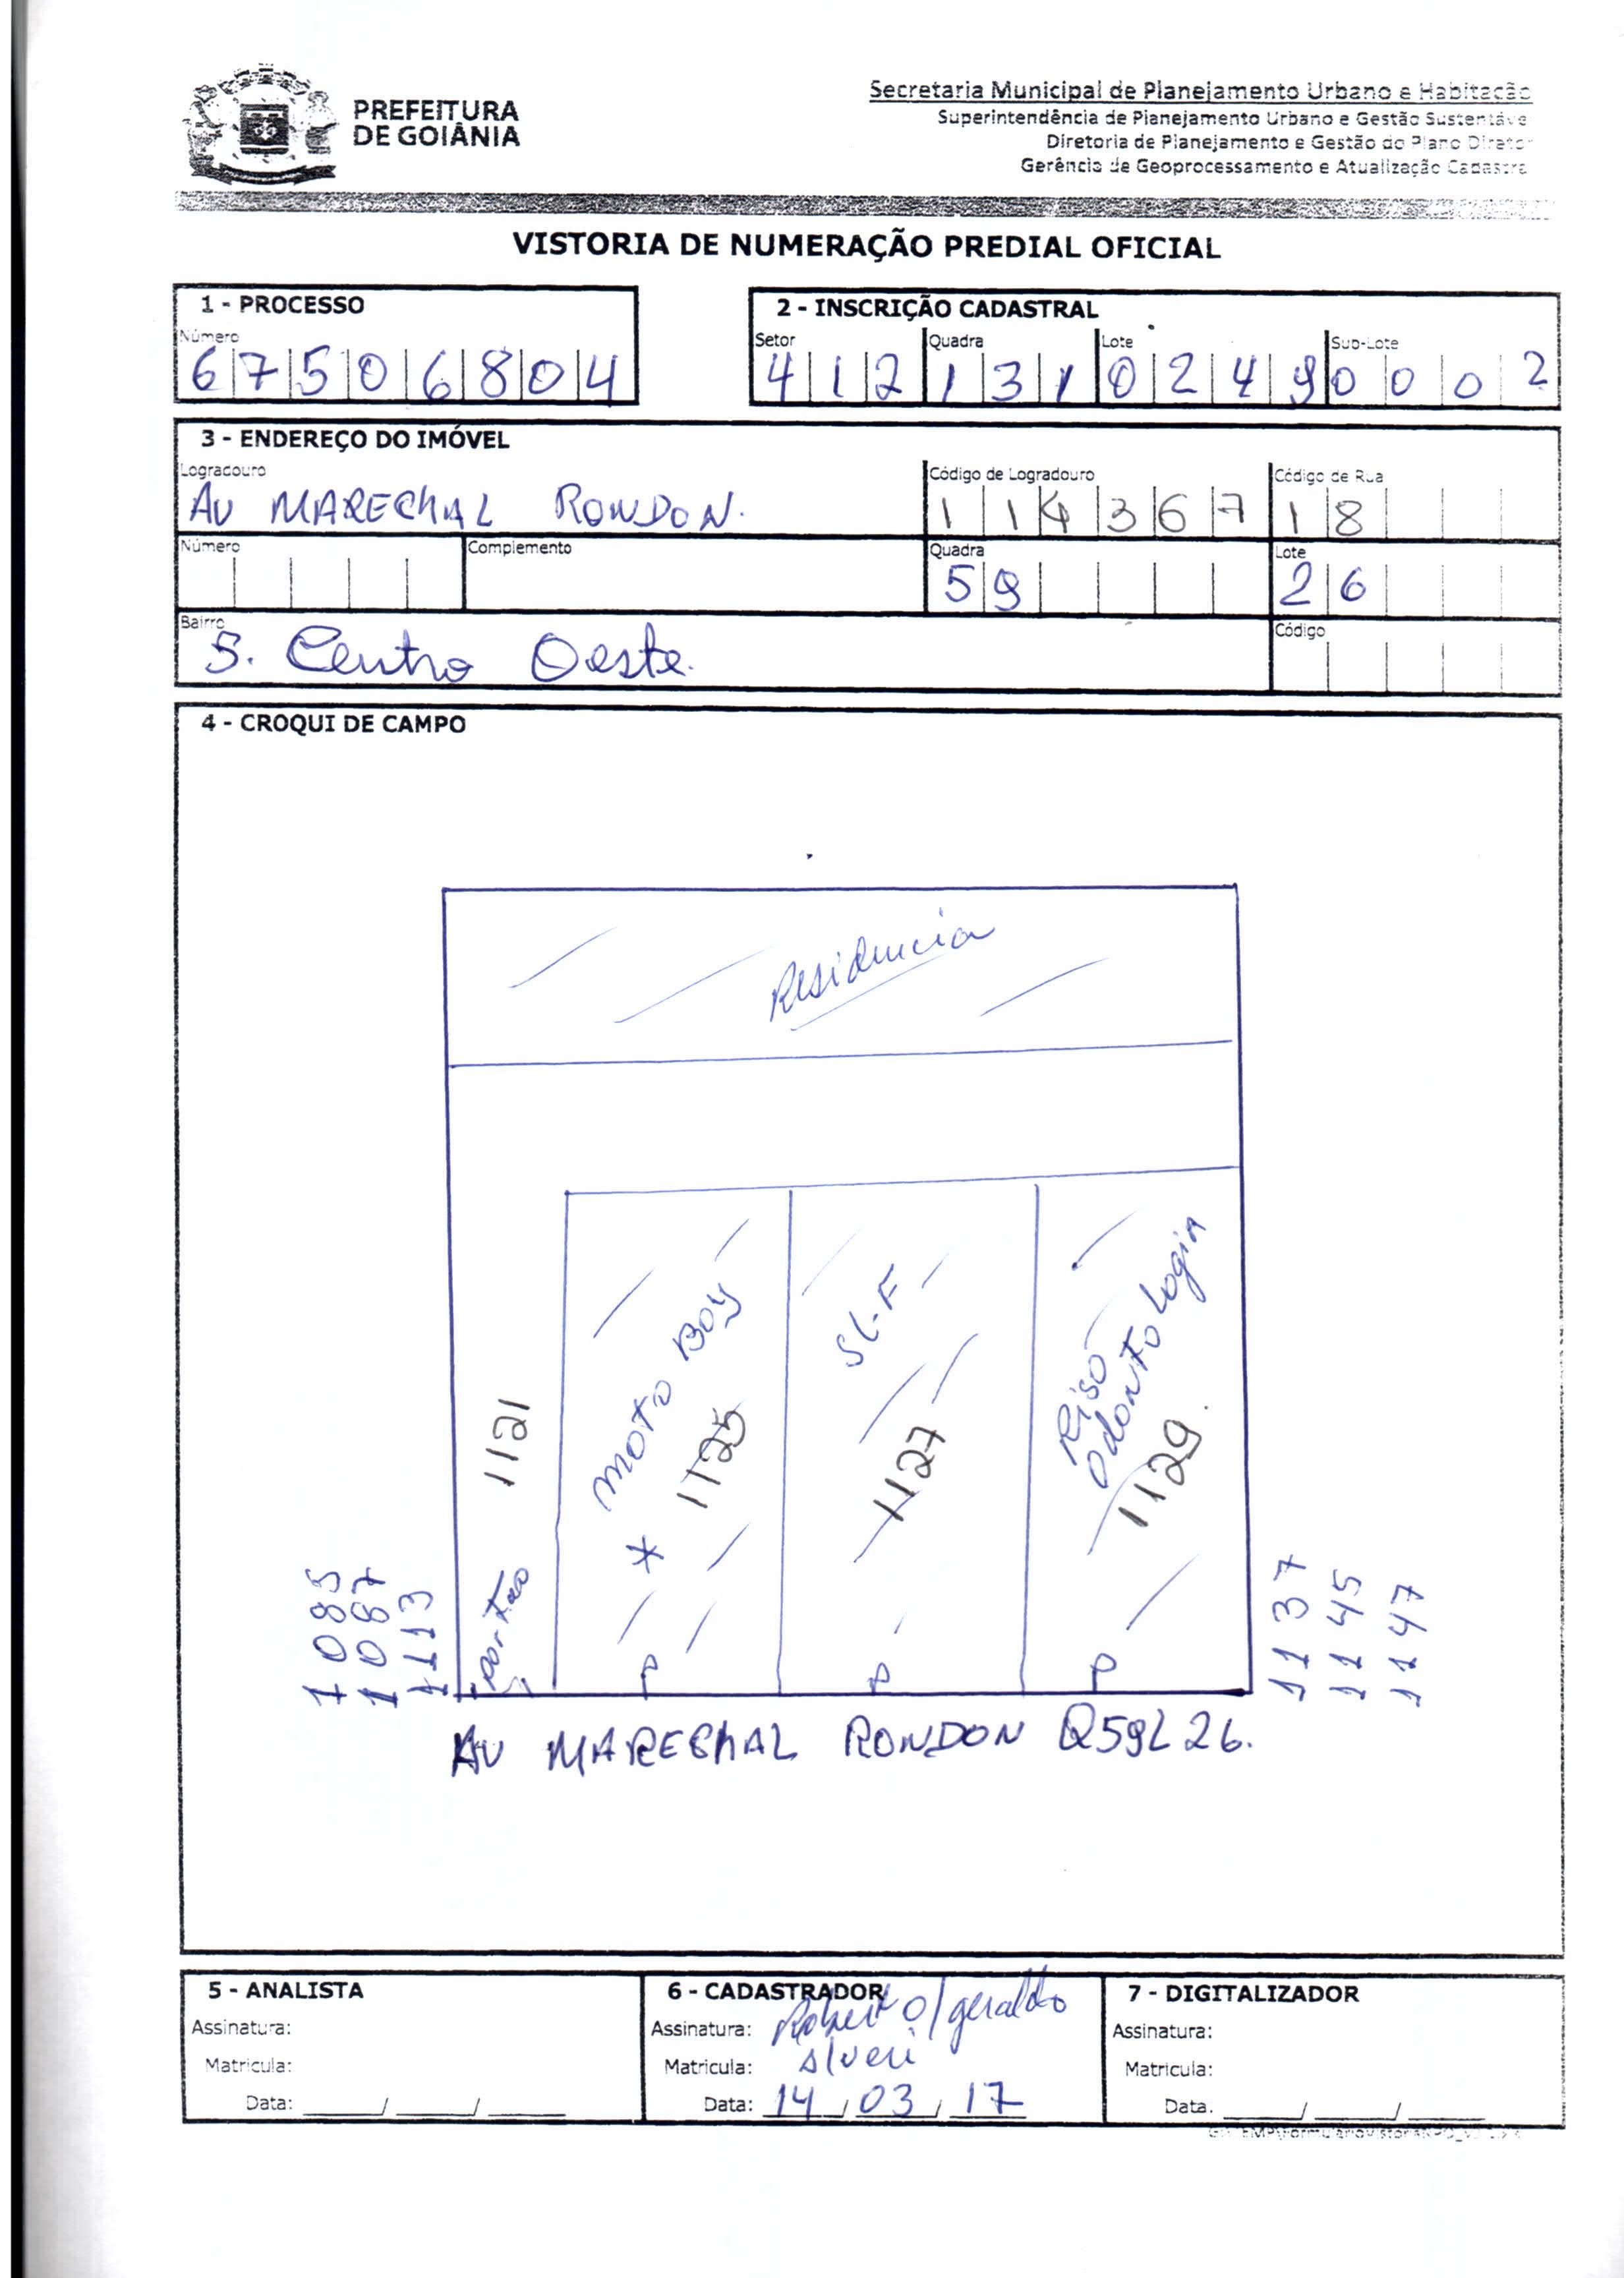 PREFEITURA
DE GOIÂNIA
Secretaria Municipal de Planejamento Urbano e Habitação
Superintendência de Planejamento Urbano e Gestão Sustentáve
Diretoria de Planejamento e Gestão do Plano Diretor
Gerência de Geoprocessamento e Atualização Cadastra
VISTORIA DE NUMERAÇÃO PREDIAL OFICIAL
1 - PROCESSO
Número
67506804
2 - INSCRIÇÃO CADASTRAL
Setor Quadra Lote Sub-Lote
412 131 0249 0002
3 - ENDEREÇO DO IMÓVEL
Logradouro Código de Logradouro Código de Rua
AV MARECHAL RONDON. 114367 18
Número Complemento Quadra Lote
59 26
Bairro Código
S. Centro Oeste.
4 - CROQUI DE CAMPO
Residencia
Moto Boy
* 1125
SL-F
1127
Riso
Odontologia
1129.
1121
portão
1085
1087
1113
1137
1145
1147
P P P
AV MARECHAL RONDON Q59L26.
5 - ANALISTA
Assinatura:
Matricula:
Data: / /
6 - CADASTRADOR
Assinatura: Robert O/geraldo
Matricula:
Data: 14/03/17
7 - DIGITALIZADOR
Assinatura:
Matricula:
Data. / /